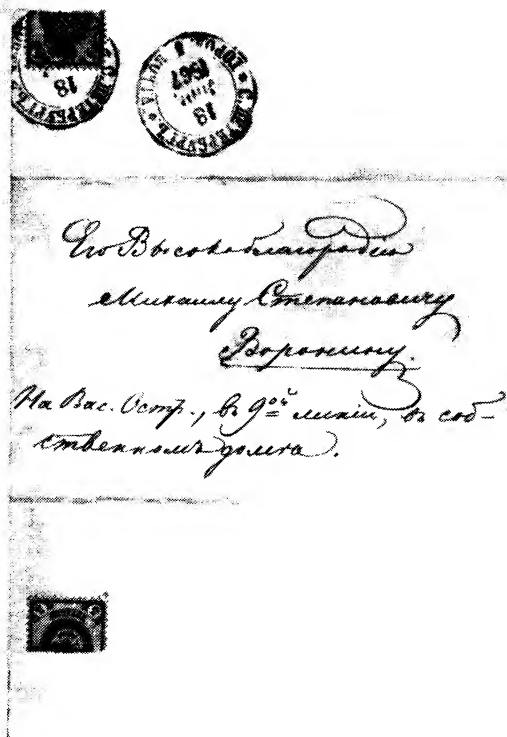 18
1867
18
С. ПЕТЕРБУРГЪ
Его Высокоблагородію
Михаилу Степановичу
Воронину.
На Вас. Остр., въ 9ой линіи, въ соб-
ственномъ домѣ.